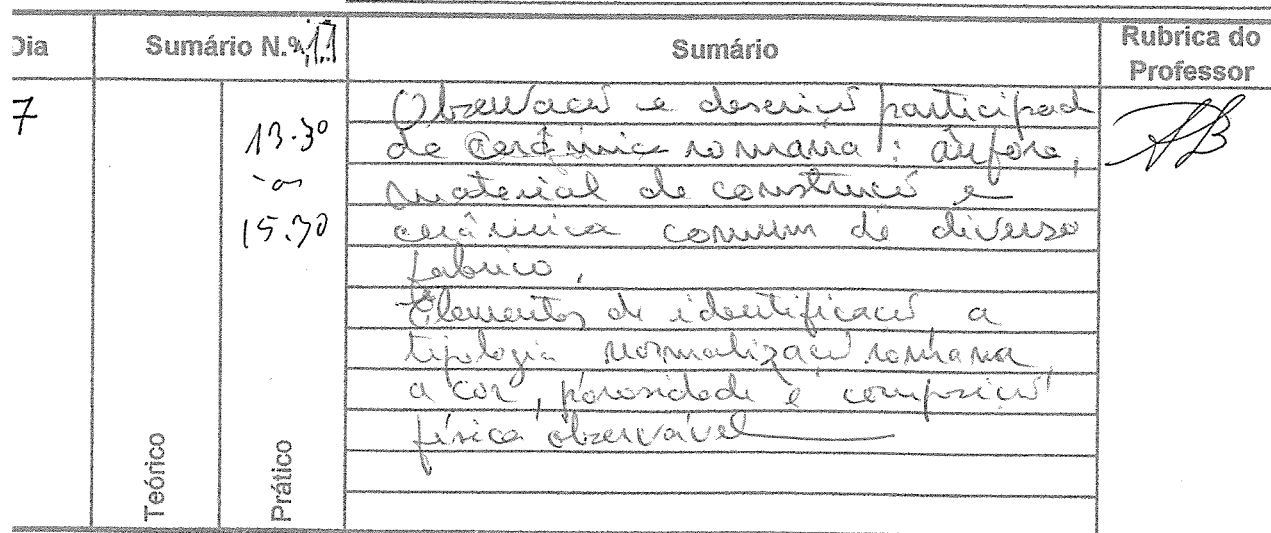 Dia Sumário N.º 11 Sumário Rubrica do Professor
7
13.30
às
15.30
Observação e descrição participad
de cerâmica romana: ânfora,
material de construção e
cerâmica comum de diverso
fabrico,
Elementos de identificação a
tipologia normalização romana,
a cor, porosidade e composição
física observável
Teórico
Prático